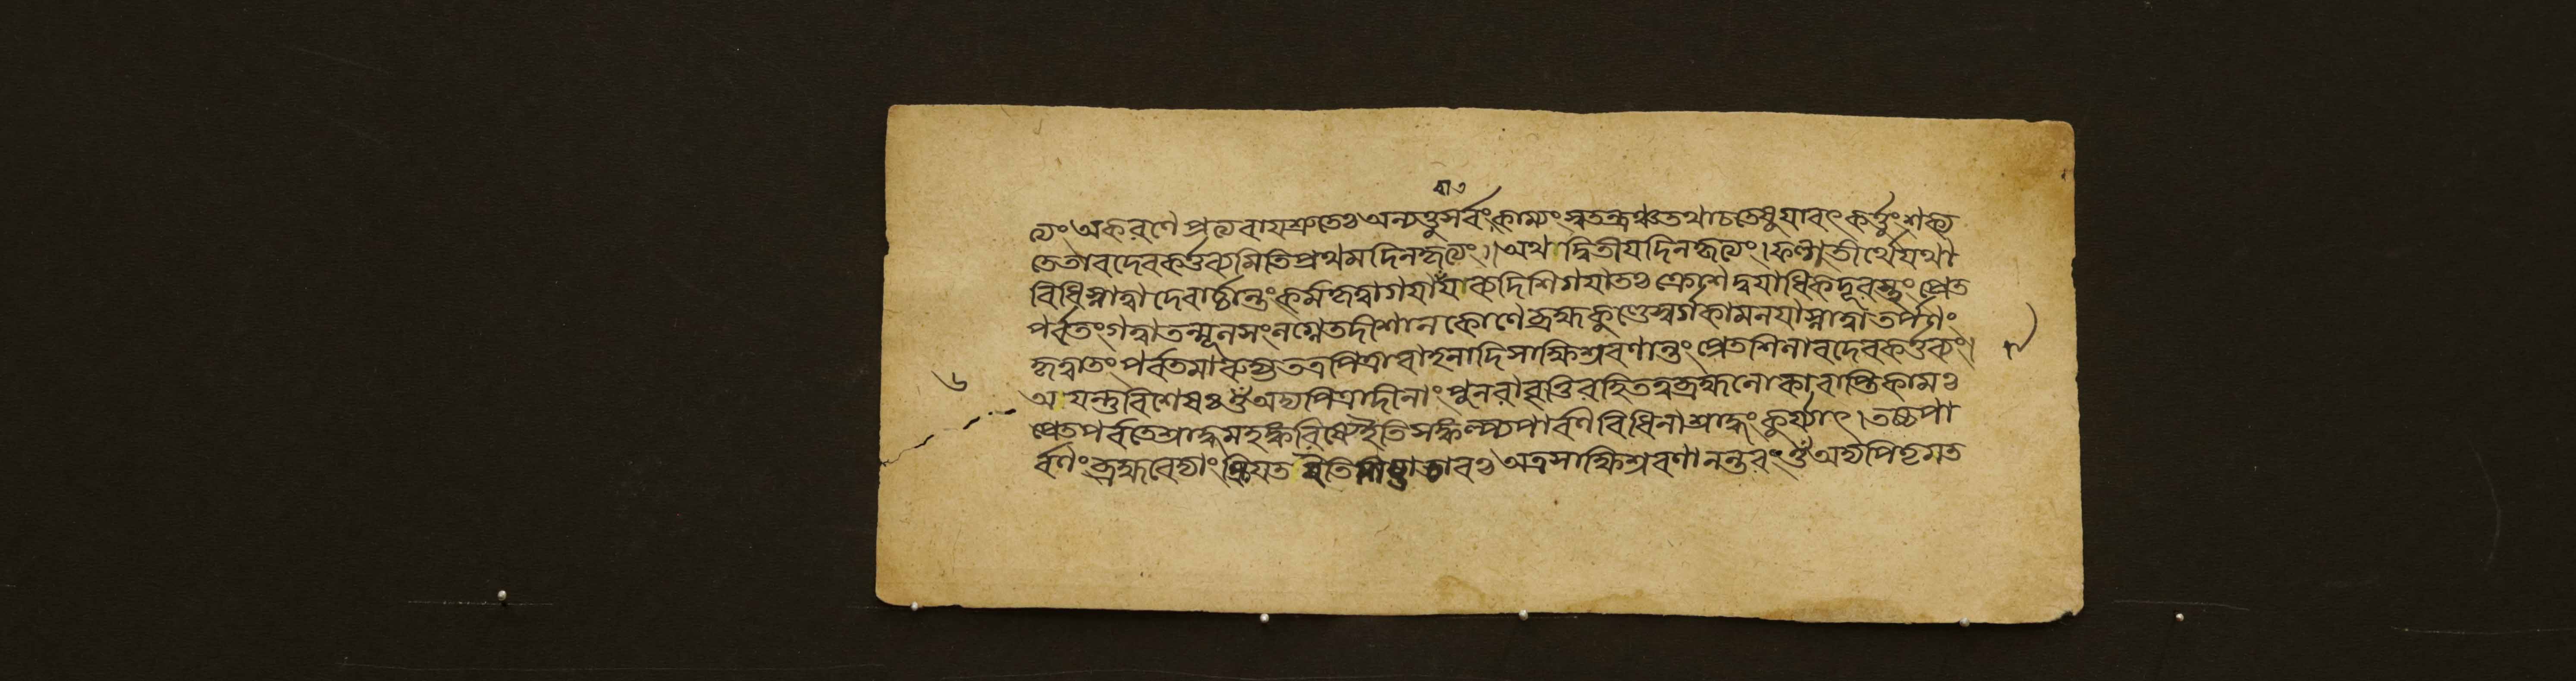 বাত
ত্যং অকরণে প্রত্যবায়শ্রুতেঃ অন্যত্তু সর্বং কাম্যং স্বতন্ত্রঞ্চ তথাচ তেষু যাবৎ কর্ত্তুং শক্য
তে তাবদেব কর্ত্তব্যমিতি প্রথমদিনকৃত্যং।। অথ দ্বিতীয়দিনকৃত্যং। ফল্গুতীর্থে যথা
বিধি স্নাত্বা দেবার্চ্চান্তং কর্ম কৃত্বা দিশি গয়াতঃ ক্রোশদ্বয়াধিকদূরস্থং প্রেত
পর্বতং গত্বা তন্মূলসংলগ্নে তদীশানকোণে ব্রহ্মকুণ্ডে স্বর্গকামনয়া স্নাত্বা তর্পণং
কৃত্বা তং পর্বতমারুহ্য তত্র পিত্রাবাহনাদি সাক্ষিশ্রবণান্তং প্রেতশিলাবদেব কর্ত্তব্যং।
অয়ন্তু বিশেষঃ ওঁ অদ্য পিত্রাদীনাং পুনরাবৃত্তিরহিতত্বব্রহ্মলোকাবাপ্তিকামঃ
প্রেতপর্বতে শ্রাদ্ধমহঙ্করিষ্যে ইতি সঙ্কল্প্য পার্বণবিধিনা শ্রাদ্ধং কুর্য্যাৎ। তচ্চ পা
র্বণং ব্রহ্মবেদ্যাং ক্রিয়ত ইতি অত্র সাক্ষিশ্রবণানন্তরং ওঁ অদ্য পিতৃমত